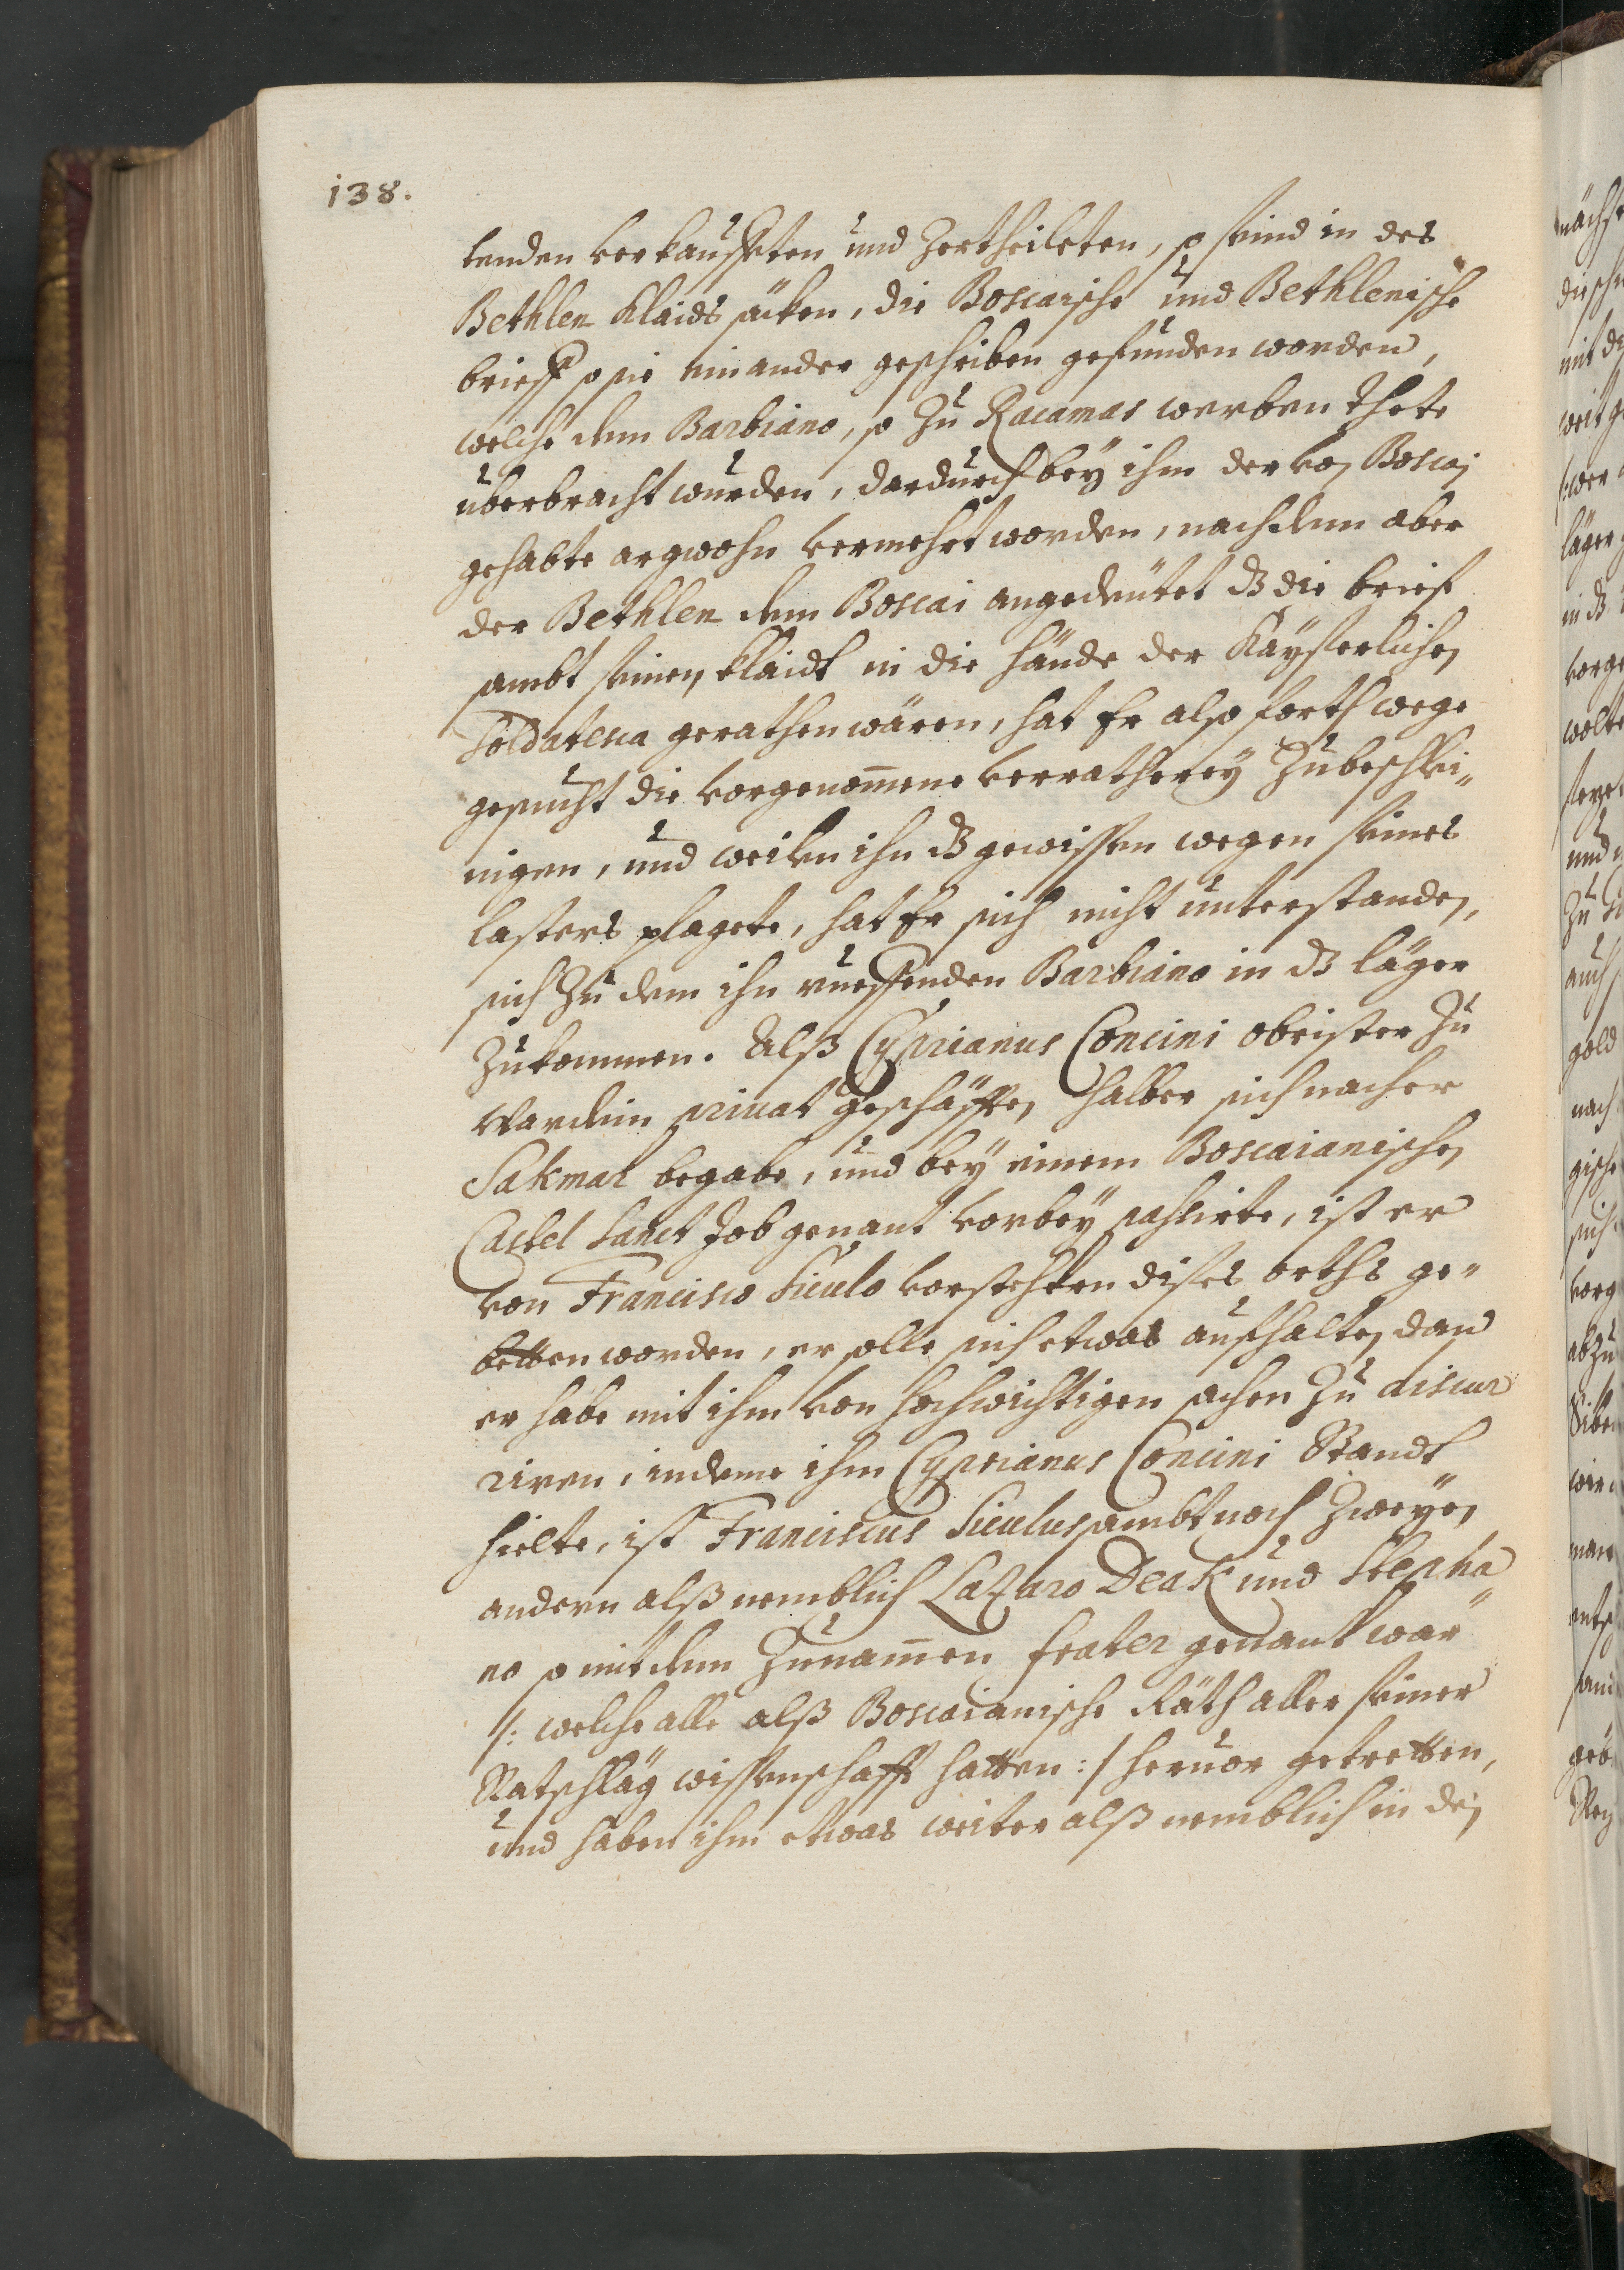 138.
tenden verkaufften und Zertheileten, so seind in des
Bethlen Klaids säcken, die Boscaische und Bethlenische
brieff so sie einander geschriben gefunden worden,
welche dem Barbiano, so Zu Racamas werben thete
überbracht wurden, dardurch bey ihm der von Boscai
gehabte argwohn vermehrt worden, nachdem aber
der Bethlen dem Boscai angedeütet dz die brief
sambt seinen klaidt in die hände der Kayserlichen
Soldatesca gerathen wären, hat Er also forth wege
gesucht die vorgenom̄ene verratherey Zubeschlei„
nigen, und weilen ihn dz gewissen wegen seines
lasters plagete, hat Er sich nicht unterstanden,
sich Zu dem ihn rueffenden Barbiano in dz läger
Zukommen. Alß Cyprianus Concini obrister Zu
Wardein privat geschäfften halber sich nacher
Sakmar begabe, und bey einem Boscaianischen
Castel Sanct Job genant vorbey passirte, ist er
von Francisco Siculo vorstehern dises orths ge„
betten worden, er solle sich etwas aufhalten dan
er habe mit ihm von hochwichtigen sachen Zu discur
riren, indeme ihm Cyprianus Concini Standt
hielte, ist Franciscus Siculus sambt noch Zweyen
andern alß nemblich Lazaro Deak und Stepha„
no so mit dem Zunam̄en frater genant war
/: welche alle alß Boscaianische Räth aller seiner
Ratschläg wissenschafft hatten :/ hervor getretten,
und haben ihm etwas weiter alß nemblich in den